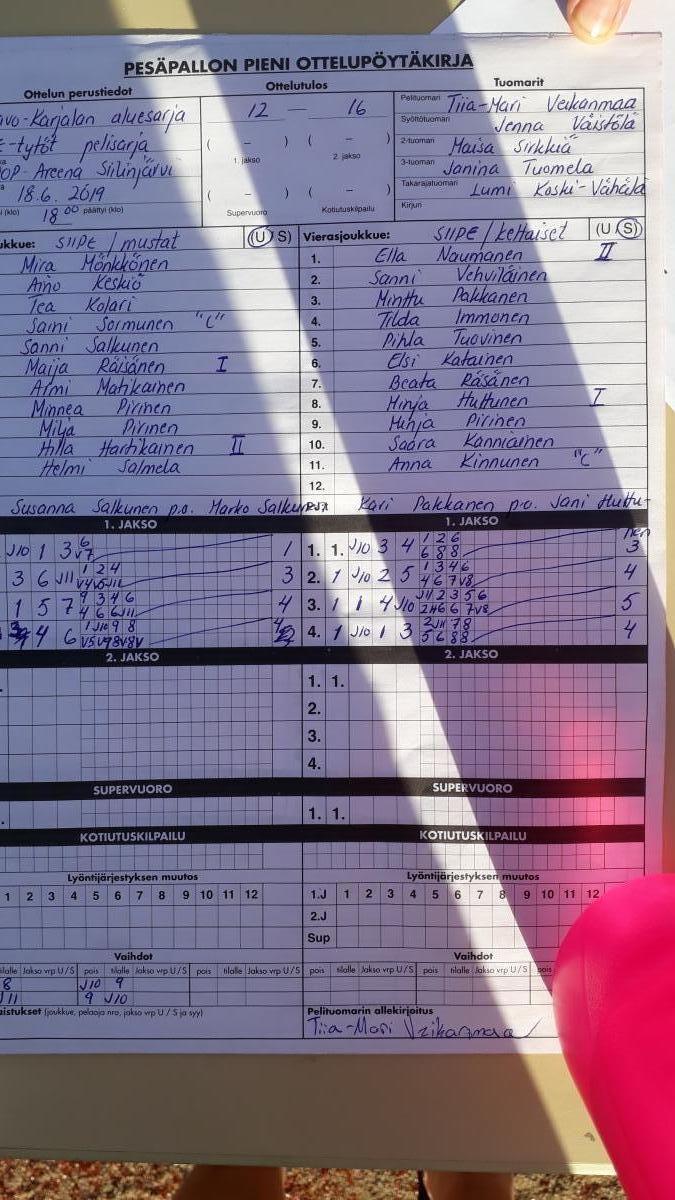 PESÄPALLON PIENI OTTELUPÖYTÄKIRJA
Ottelun perustiedot
Ottelutulos
Tuomarit
avo-Karjalan aluesarja
-tytöt pelisarja
OP-Areena Siilinjärvi
18.6. 2019
(klo) 18 00 päättyi (klo)
12 — 16
( – ) ( – )
1. jakso 2. jakso
( – ) ( – )
Supervuoro Kotiutuskilpailu
Pelituomari Tiia-Mari Veikanmaa
Syöttötuomari Jenna Väistölä
2-tuomari Maisa Sirkkiä
3-tuomari Janina Tuomela
Takarajatuomari Lumi Koski-Vähälä
Kirjuri
ukkue: SIIPE / mustat (U S)
Mira Mönkkönen
Aino Keskiö
Tea Kolari
Saini Sormunen "C"
Sanni Salkunen
Maija Räisänen I
Armi Matikainen
Minnea Pirinen
Milja Pirinen
Hilla Hartikainen II
Helmi Salmela
Susanna Salkunen p.o. Marko Salkunen
Vierasjoukkue: SIIPE / keltaiset (U S)
1. Ella Naumanen II
2. Sanni Vehviläinen
3. Minttu Pakkanen
4. Tilda Immonen
5. Pihla Tuovinen
6. Elsi Katainen
7. Beata Räsänen
8. Hinja Huttunen I
9. Minja Pirinen
10. Saara Kanniainen
11. Anna Kinnunen "C"
12.
PJ: Kari Pakkanen p.o. Jani Huttu-
nen
1. JAKSO
J10 1 3 6 V7 1
3 6 J11 1 2 4 V4V5J11 3
1 5 7 9 3 4 6 4 6 6J11 4
4 6 1 J10 9 8 V5V78V8V
1. JAKSO
1. 1. J10 3 4 1 2 6 6 8 8 3
2. 1 J10 2 5 1 3 4 6 4 6 7 V8 4
3. 1 1 4 J10 J11 2 3 5 6 2H6 6 7 V8 5
4. 1 J10 1 3 2J11 7 8 5 6 8 8 4
2. JAKSO
2. JAKSO
1. 1.
2.
3.
4.
SUPERVUORO
SUPERVUORO
1. 1.
KOTIUTUSKILPAILU
KOTIUTUSKILPAILU
Lyöntijärjestyksen muutos
1 2 3 4 5 6 7 8 9 10 11 12
Lyöntijärjestyksen muutos
1.J 1 2 3 4 5 6 7 8 9 10 11 12
2.J
Sup
Vaihdot
tilalle Jakso vrp U / S pois tilalle Jakso vrp U / S pois tilalle Jakso vrp U / S
8 J10 9
J11 9 J10
Vaihdot
pois tilalle Jakso vrp U / S pois tilalle Jakso vrp U / S pois
aistukset (joukkue, pelaaja nro, jakso vrp U / S ja syy)
Pelituomarin allekirjoitus
Tiia-Mari Veikanmaa